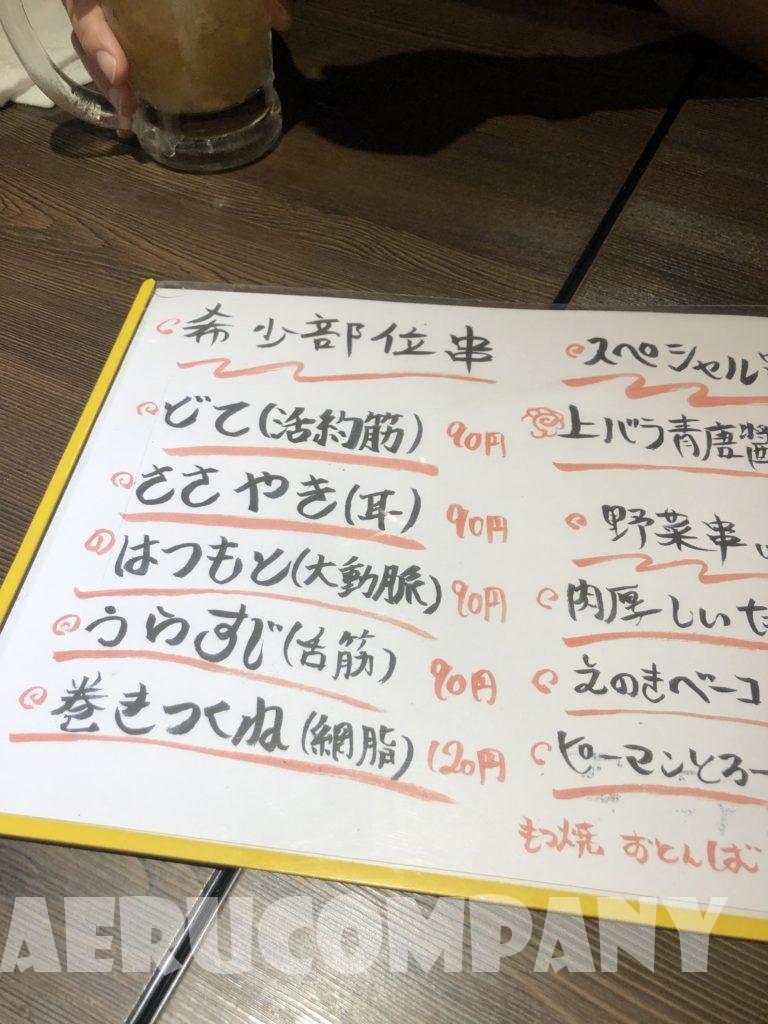 希少部位串
どて(活約筋) 90円
ささやき(耳) 90円
はつもと(大動脈) 90円
うらすじ(舌筋) 90円
巻きつくね(網脂) 120円
スペシャル
上バラ青唐醬
野菜串
肉厚しいた
えのきベーコ
ピーマンとろー
もつ焼 おとんば
AERUCOMPANY